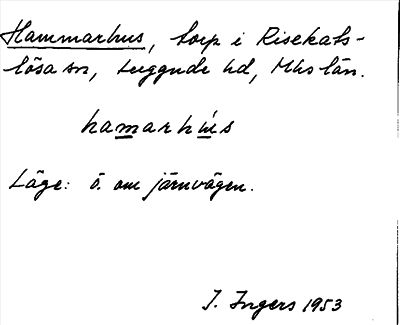 Hammarhus, torp i Risekats-
lösa sn, Luggude hd, Mhs län.
hamarhús
Läge: ö. om järnvägen.
I. Ingers 1953